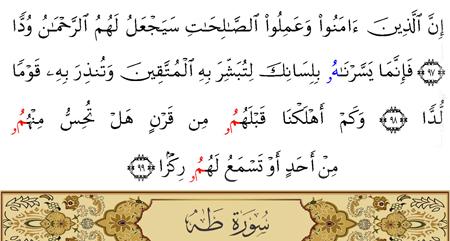 إِنَّ ٱلَّذِينَ ءَامَنُوا۟ وَعَمِلُوا۟ ٱلصَّـٰلِحَـٰتِ سَيَجْعَلُ لَهُمُ ٱلرَّحْمَـٰنُ وُدًّا
٩٧ فَإِنَّمَا يَسَّرْنَـٰهُۥ بِلِسَانِكَ لِتُبَشِّرَ بِهِ ٱلْمُتَّقِينَ وَتُنذِرَ بِهِۦ قَوْمًا
لُّدًّا ٩٨ وَكَمْ أَهْلَكْنَا قَبْلَهُمُۥ مِن قَرْنٍ هَلْ تُحِسُّ مِنْهُمُۥ
مِنْ أَحَدٍ أَوْ تَسْمَعُ لَهُمُۥ رِكْزًۢا ٩٩
سُورَةُ طَهَ